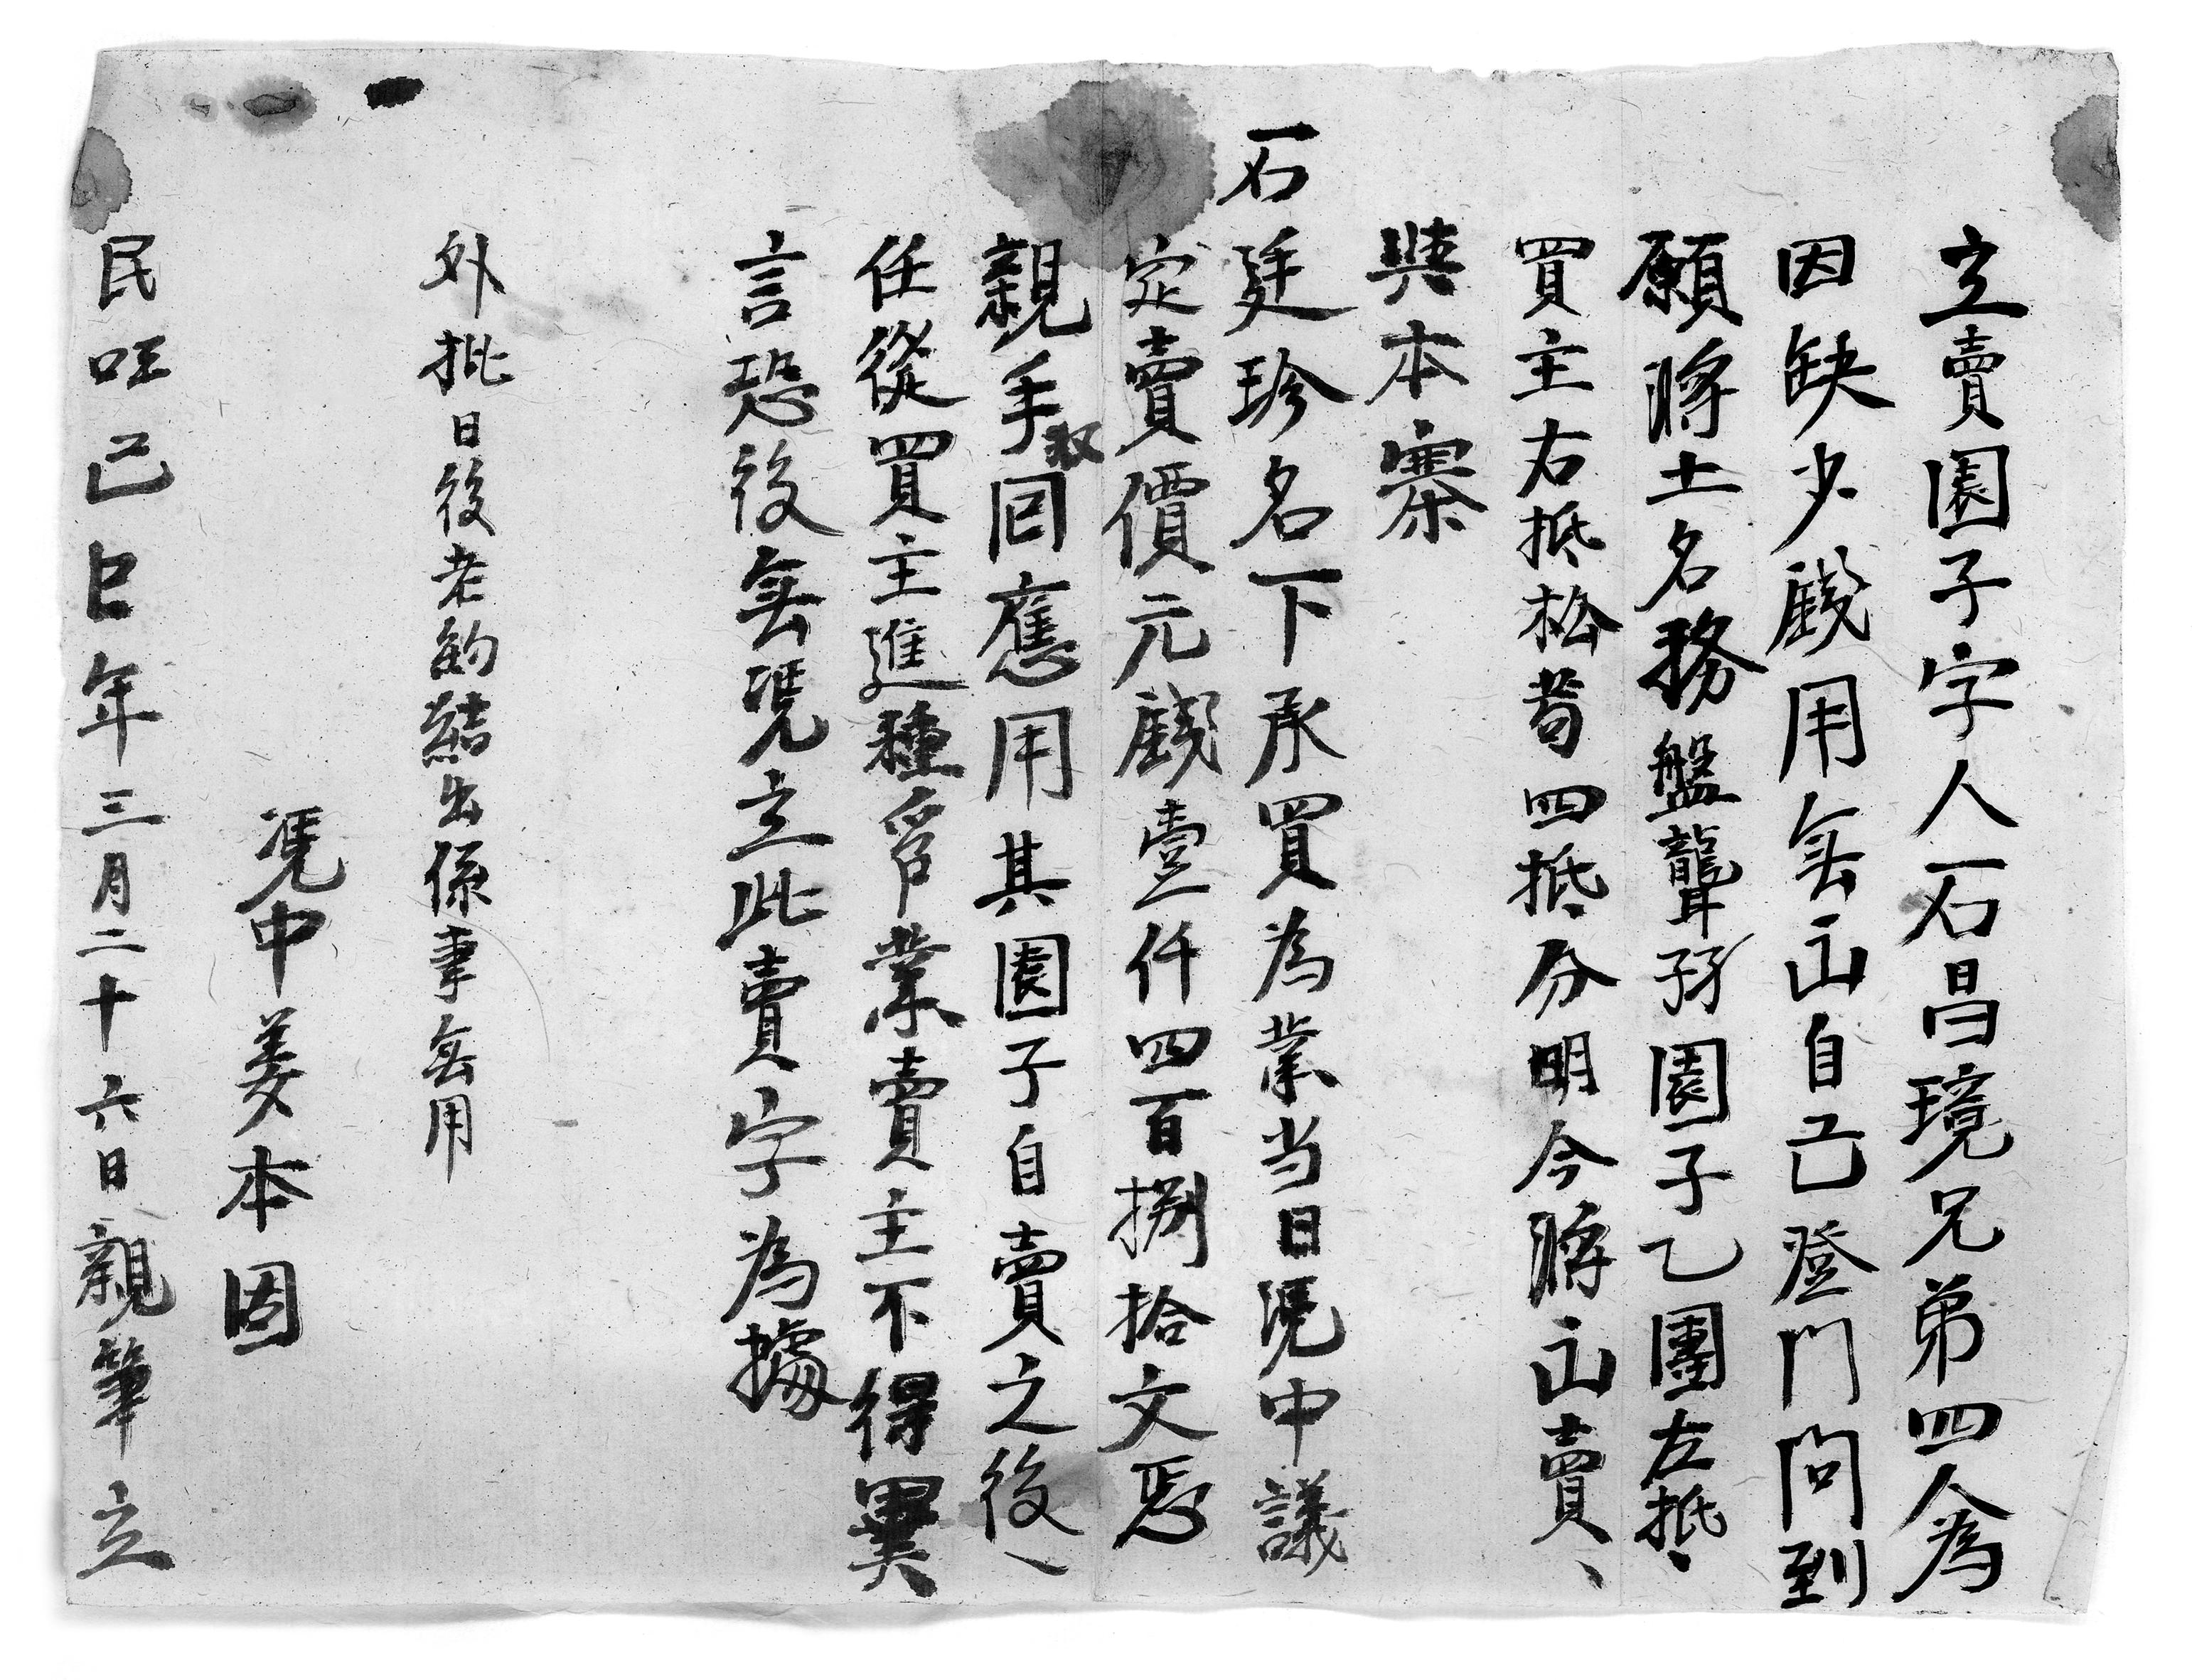 立賣園子字人石昌璄兄弟四人為
因缺少錢用無出自己登門問到
願將土名務盤聾孖園子乙團左抵
買主右抵松荀四抵分明今將出賣
與本寨
石廷珍名下承買為業当日凴中議
定賣價元錢壹仟四百捌拾文恁
親手収回應用其園子自賣之後
任從買主進種管業賣主不得異
言恐後無凴立此賣字為據
外批日後老約結出係事無用
凴中姜本固
民囯己巳年三月二十六日親筆立